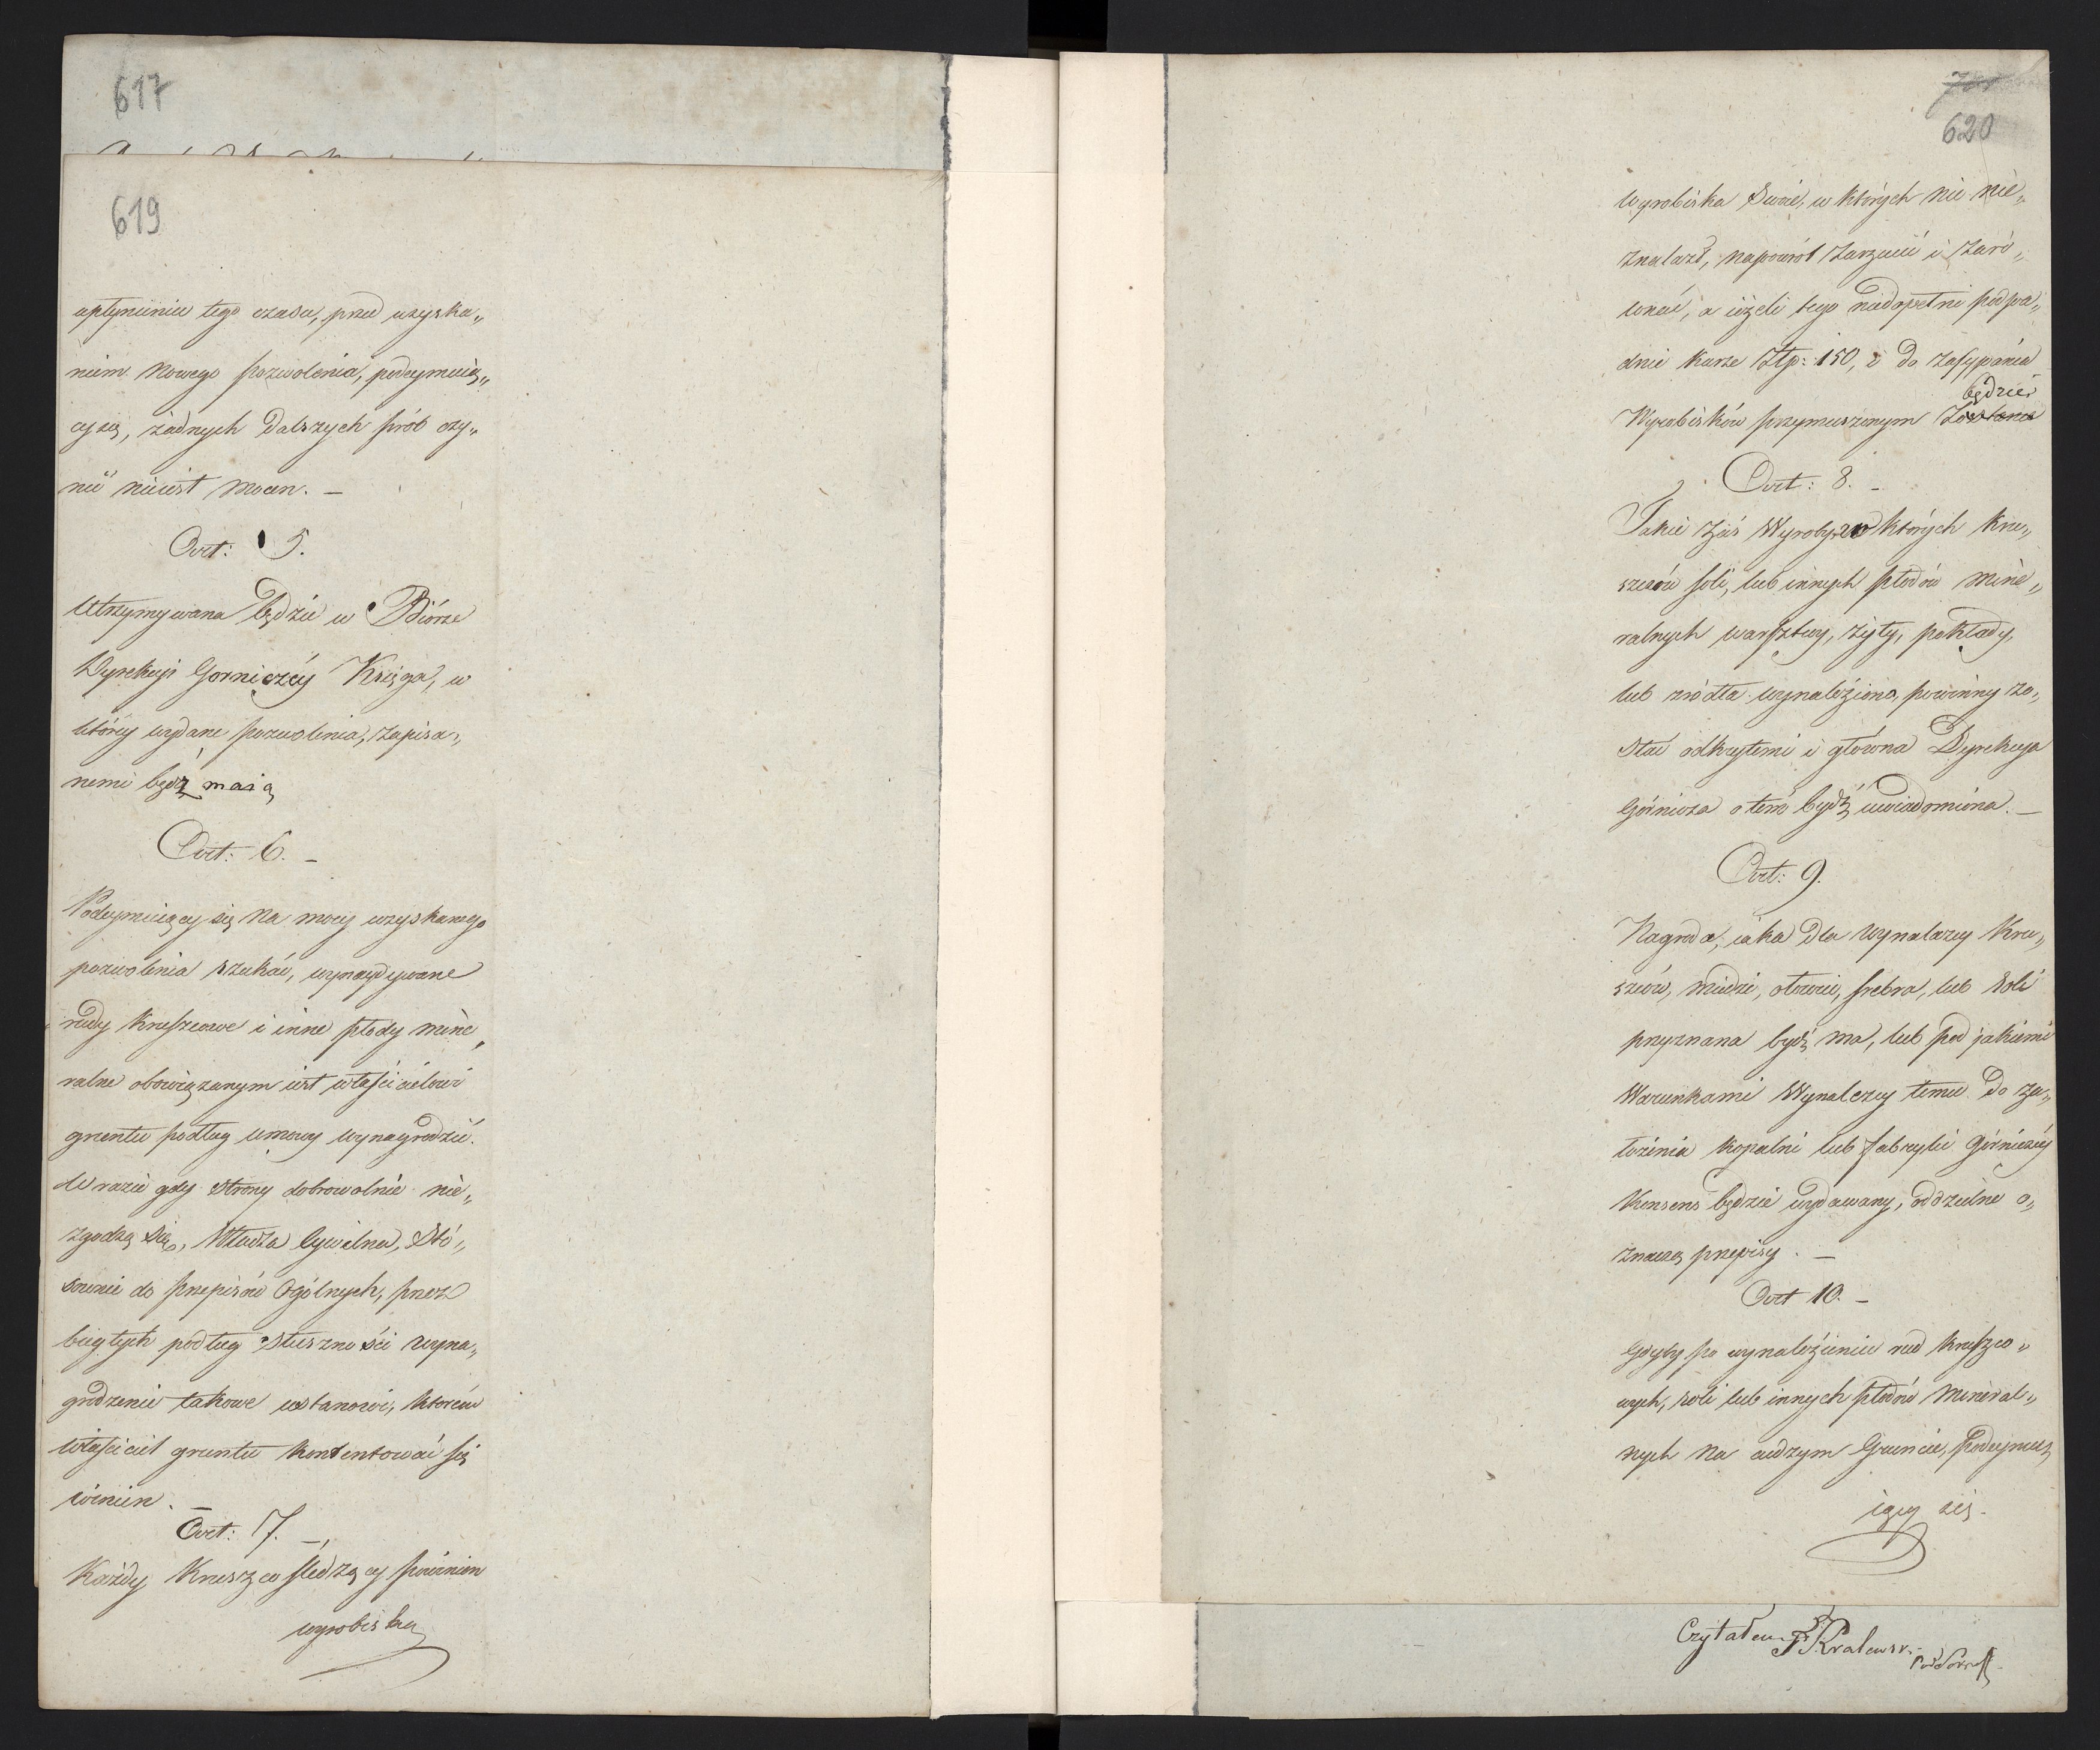 617
619
upłynieniu tego czasu, przed uzyska„
niem nowego pozwolenia, podeymuią„
cy się, żadnych dalszych prób czy„
nić nieiest mocen. —
Art: 5.
Utrzymywana będzie w Biórze
Dyrekcyi Gorniczéy Księga, w
któréy wydane pozwolenia, zapisa„
nemi bydź maią
Art: 6. —
Podeymuiący się na mocy uzyskanego
pozwolenia szukać, wynaydywane
rudy kruszcowe i inne płody mine„
ralne obowiązanym iest właścicielowi
gruntu podług umowy wynagrodzić.
W razie gdy strony dobrowolnie nie„
zgodzą się, Władza Cywilna, Sto„
sownie do przepisów Ogólnych, przez
biegłych podług Słuszności wyna„
grodzenie takowe ustanowi, któreém
właściciel gruntu kontentować się
winien. —
Art: 7. —
Każdy Kruszców śledzący powinien
wyrobiska
701
620
wyrobiska Swoie, w których nic nie„
znalazł, napowrót zarzucić i zaró„
wnać, a ieżeli tego niedopełni podpa„
dnie karze Złp: 150, i do zasypania
będzie
Wyrobisków przymuszonym zostanie
Art: 8. —
Takie zaś Wyroby, w których kru„
szców soli, lub innych płodów mine„
ralnych warsztwy, żyły, pokłady,
lub zródła wynaleziono, powinny zo„
stać odkrytemi i główna Dyrekcya
Górnicza o tem bydź uwiadomiona. —
Art: 9.
Nagroda, iaka dla wynalazcy kru„
szców, miedzi, ołowiu, srebra, lub Soli
przyznana bydź ma, lub pod jakiemi
Warunkami Wynalazcy temu do za„
łożenia kopalni lub fabryki górniczéy
Konsens będzie wydawany, oddzielne o„
znaczą przepisy. —
Art 10. —
Gdyby po wynalezieniu rud kruszco„
wych, soli lub innych płodów mineral„
nych na cudzym Gruncie, podeymu„
iący się.
Czytałem F Kralewski